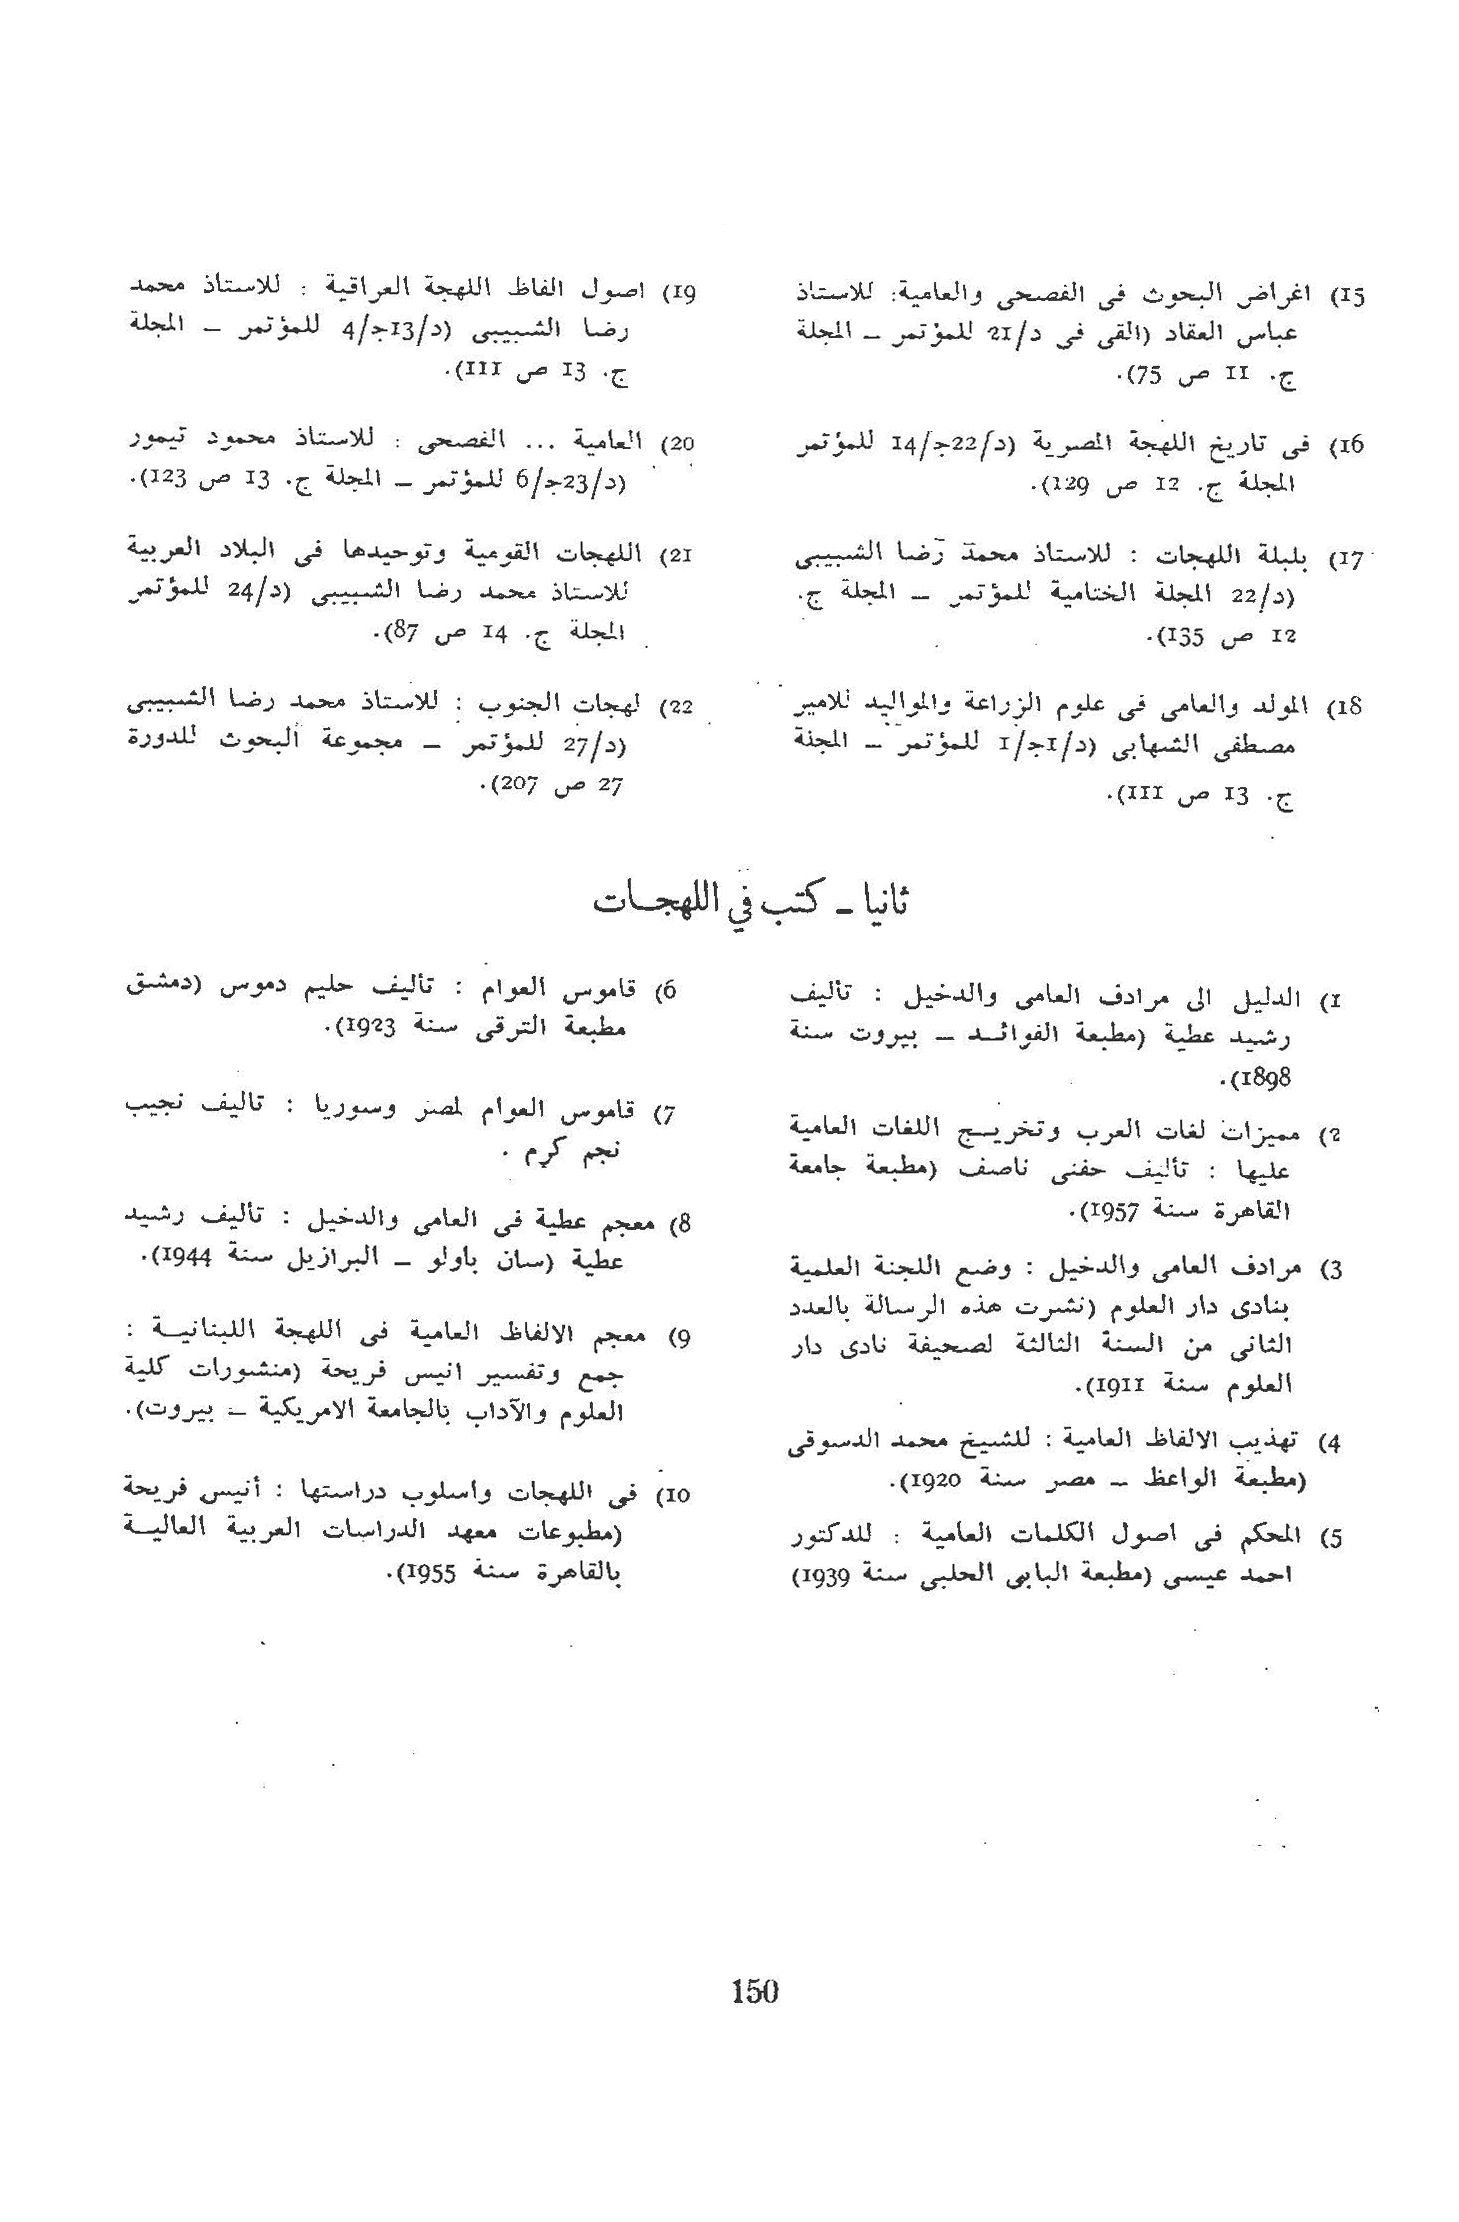 15) اغراض البحوث فى الفصحى والعامية: للاستاذ
عباس العقاد (القى فى د/21 للمؤتمر — المجلة
ج. 11 ص 75).
16) فى تاريخ اللهجة المصرية (د/22ج/14 للمؤتمر
المجلة ج. 12 ص 129).
17) بلبلة اللهجات : للاستاذ محمد رضا الشبيبى
(د/22 المجلة الختامية للمؤتمر — المجلة ج.
12 ص 135).
18) المولد والعامى فى علوم الزراعة والمواليد للامير
مصطفى الشهابى (د/1ج/1 للمؤتمر — المجلة
ج. 13 ص 111).
19) اصول الفاظ اللهجة العراقية : للاستاذ محمد
رضا الشبيبى (د/13ج/4 للمؤتمر — المجلة
ج. 13 ص 111).
20) العامية ... الفصحى : للاستاذ محمود تيمور
(د/23ج/6 للمؤتمر — المجلة ج. 13 ص 123).
21) اللهجات القومية وتوحيدها فى البلاد العربية
للاستاذ محمد رضا الشبيبى (د/24 للمؤتمر
المجلة ج. 14 ص 87).
22) لهجات الجنوب : للاستاذ محمد رضا الشبيبى
(د/27 للمؤتمر — مجموعة البحوث للدورة
27 ص 207).
ثانيا — كتب في اللهجات
1) الدليل الى مرادف العامى والدخيل : تأليف
رشيد عطية (مطبعة الفوائد — بيروت سنة
1898).
2) مميزات لغات العرب وتخريج اللغات العامية
عليها : تأليف حفنى ناصف (مطبعة جامعة
القاهرة سنة 1957).
3) مرادف العامى والدخيل : وضع اللجنة العلمية
بنادى دار العلوم (نشرت هذه الرسالة بالعدد
الثانى من السنة الثالثة لصحيفة نادى دار
العلوم سنة 1911).
4) تهذيب الالفاظ العامية : للشيخ محمد الدسوقى
(مطبعة الواعظ — مصر سنة 1920).
5) المحكم فى اصول الكلمات العامية : للدكتور
احمد عيسى (مطبعة البابى الحلبى سنة 1939)
6) قاموس العوام : تأليف حليم دموس (دمشق
مطبعة الترقى سنة 1923).
7) قاموس العوام لمصر وسوريا : تاليف نجيب
نجم كرم .
8) معجم عطية فى العامى والدخيل : تأليف رشيد
عطية (سان باولو — البرازيل سنة 1944).
9) معجم الالفاظ العامية فى اللهجة اللبنانية :
جمع وتفسير انيس فريحة (منشورات كلية
العلوم والآداب بالجامعة الامريكية — بيروت).
10) فى اللهجات واسلوب دراستها : أنيس فريحة
(مطبوعات معهد الدراسات العربية العالية
بالقاهرة سنة 1955).
150